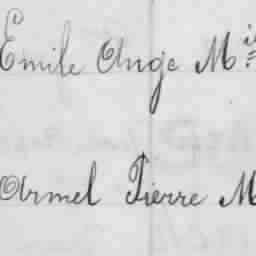 Emile Ange M
Armel Pierre M